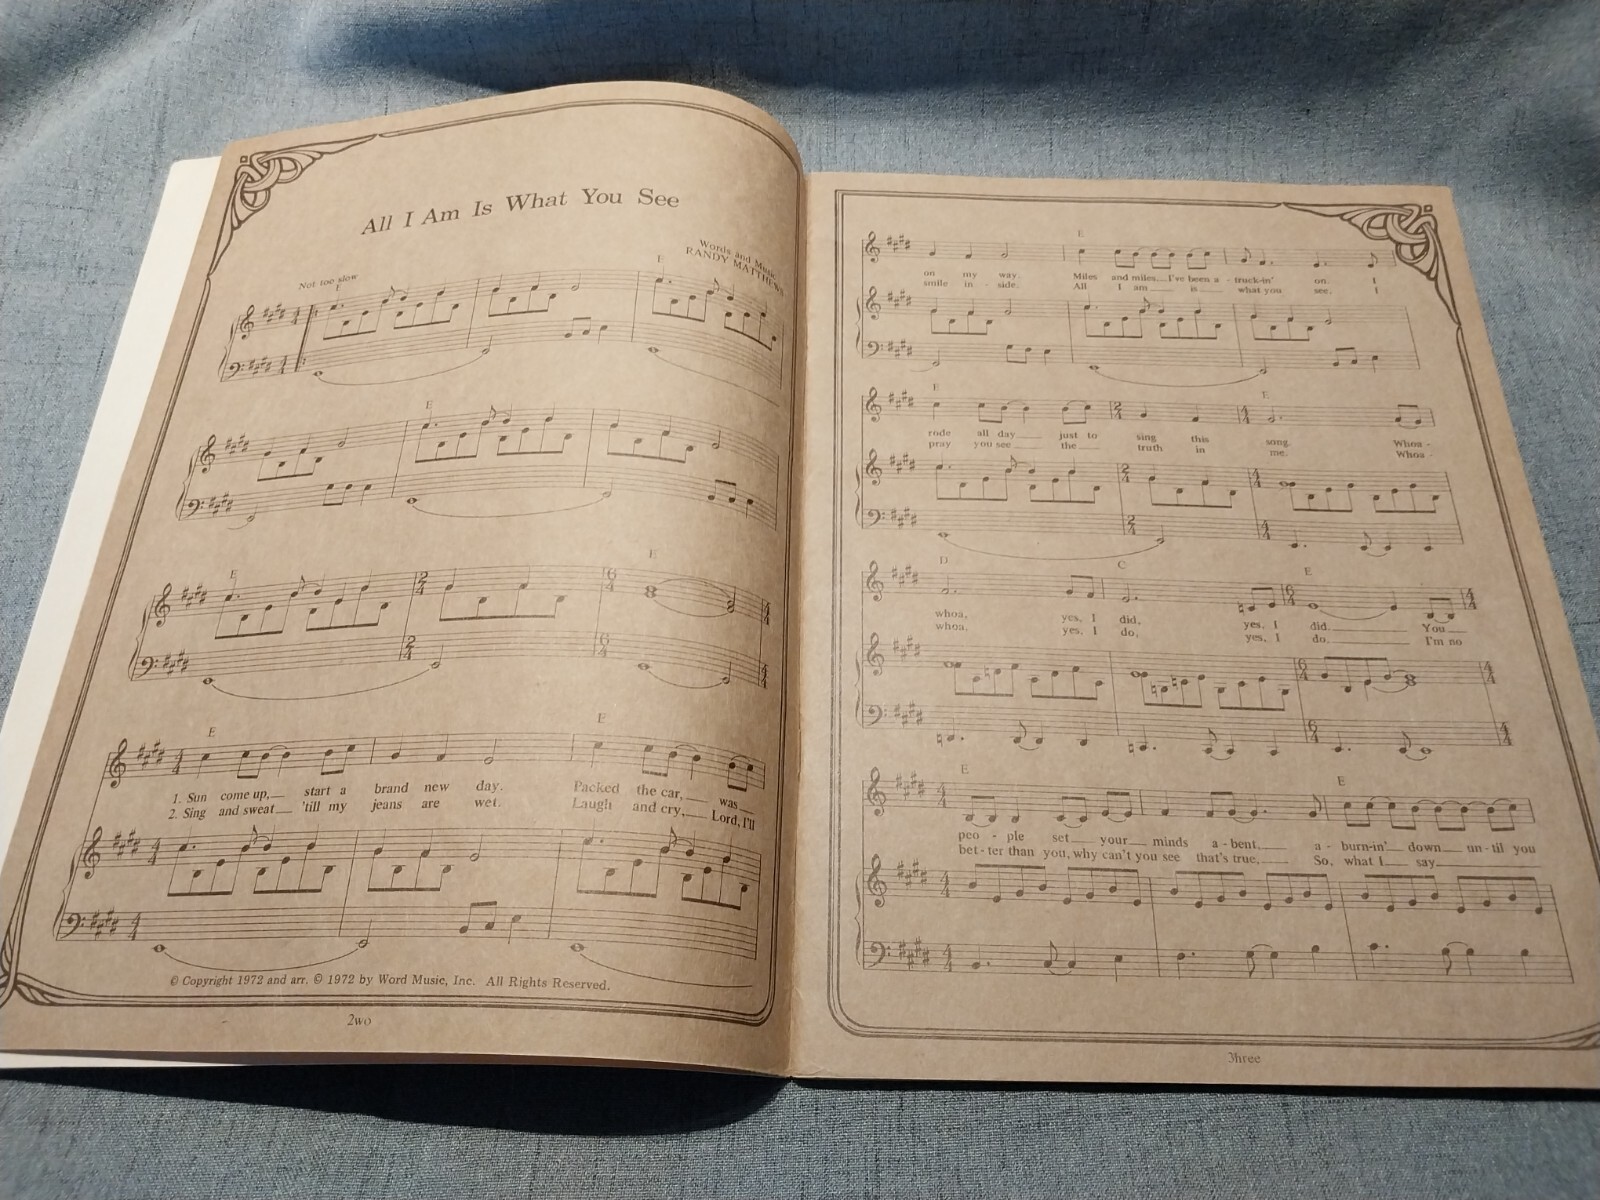 All I Am Is What You See
Words and Music
RANDY MATTHEWS
Not too slow
E
E
E
E
E
E
E
1. Sun come up,__ start a brand new day. Packed the car,__ was__
2. Sing and sweat__ 'till my jeans are wet. Laugh and cry,__ Lord, I'll
© Copyright 1972 and arr. © 1972 by Word Music, Inc. All Rights Reserved.
2wo
E
on my way. Miles and miles__ I've been a - truck-in' on. I
smile in - side. All I am__ is__ what you see, I
E E
rode all day__ just to sing this song. Whoa -
pray you see__ the__ truth in me. Whoa -
D C E
whoa, yes, I did, yes, I did.__ You__
whoa, yes, I do, yes, I do.__ I'm no
E E
peo - ple set__ your__ minds a - bent,__ a - burn-in' down__ un - til you
bet - ter than you, why can't you see that's true,__ So, what I__ say__
3hree